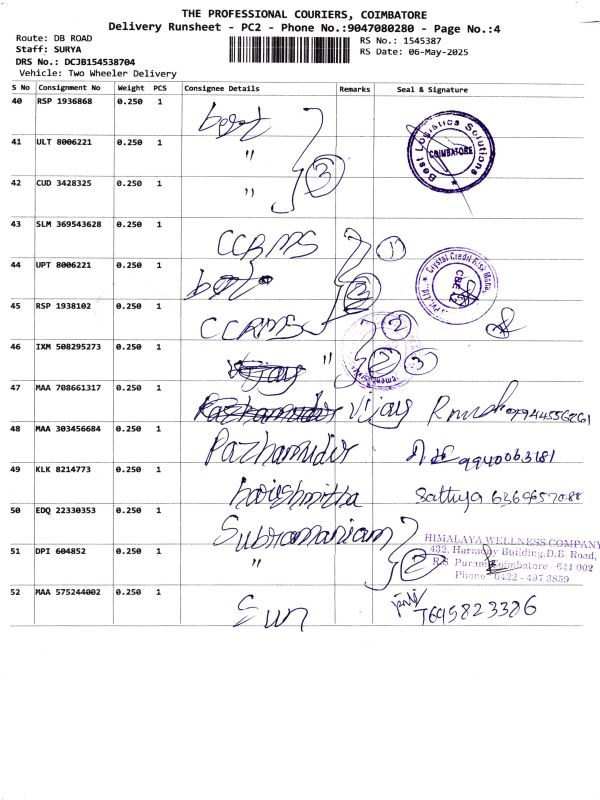 THE PROFESSIONAL COURIERS, COIMBATORE
Delivery Runsheet - PC2 - Phone No.:9047080280 - Page No.:4
Route: DB ROAD
RS No.: 1545387
Staff: SURYA
RS Date: 06-May-2025
DRS No.: DCJB154538704
Vehicle: Two Wheeler Delivery
S No Consignment No Weight PCS Consignee Details Remarks Seal & Signature
40 RSP 1936868 0.250 1 best
41 ULT 8006221 0.250 1 "
42 CUD 3428325 0.250 1 " 3
Best Logistics Solutions
COIMBATORE
43 SLM 369543628 0.250 1 CCRMS 1
44 UPT 8006221 0.250 1
Crystal Credit Risk
CBE
45 RSP 1938102 0.250 1 CCRMS 2
46 IXM 508295273 0.250 1 " 3
47 MAA 708661317 0.250 1 Vijay
48 MAA 303456684 0.250 1 Pazhamudir 9940063181
49 KLK 8214773 0.250 1 Sattuya
50 EDQ 22330353 0.250 1 Subramaniam
51 DPI 604852 0.250 1 " 2
HIMALAYA WELLNESS COMPANY
432, Harmony Building, D.B. Road,
R.S Puram, Coimbatore - 641 002
Phone : 0422 - 497 3859
52 MAA 575244002 0.250 1 Sun 7695823386